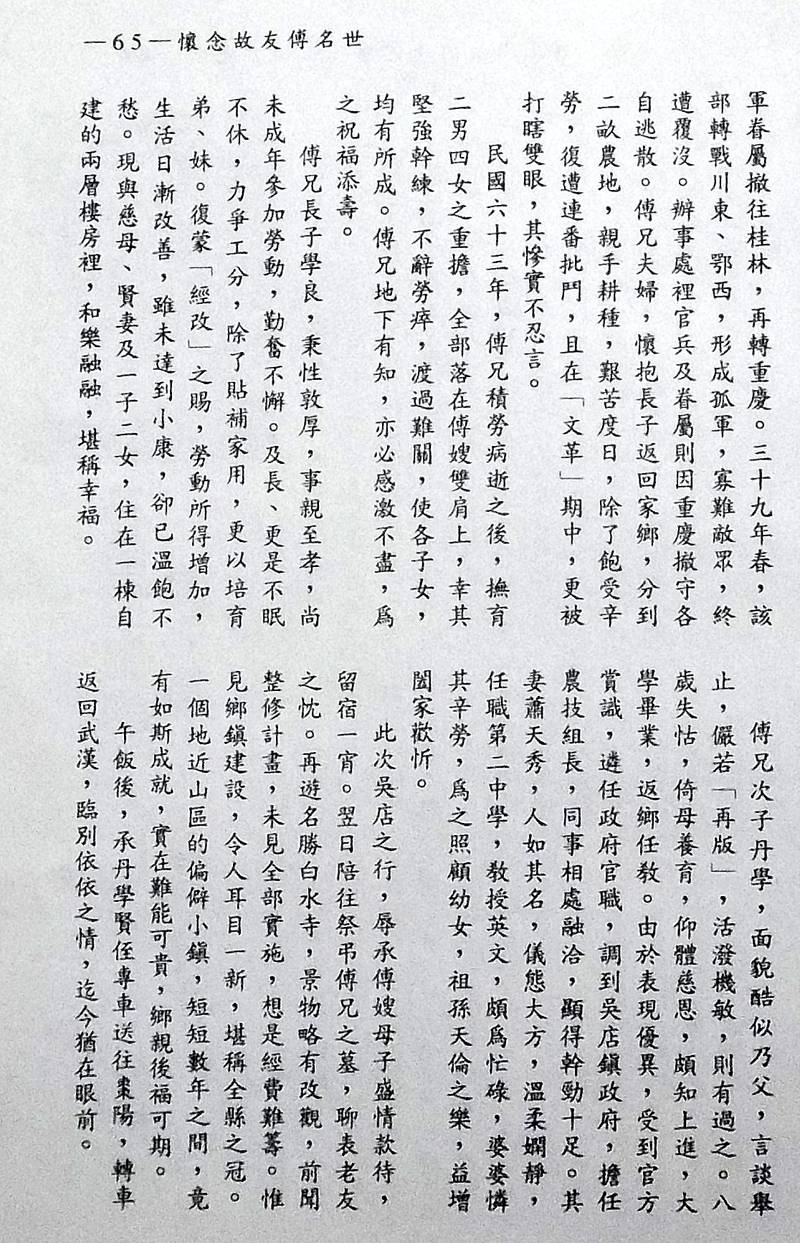 —65—懷念故友傅名世
軍眷屬撤往桂林，再轉重慶。三十九年春，該
部轉戰川東、鄂西，形成孤軍，寡難敵眾，終
遭覆沒。辦事處裡官兵及眷屬則因重慶撤守各
自逃散。傅兄夫婦，懷抱長子返回家鄉，分到
二畝農地，親手耕種，艱苦度日，除了飽受辛
勞，復遭連番批鬥，且在「文革」期中，更被
打瞎雙眼，其慘實不忍言。
民國六十三年，傅兄積勞病逝之後，撫育
二男四女之重擔，全部落在傅嫂雙肩上，幸其
堅強幹練，不辭勞瘁，渡過難關，使各子女，
均有所成。傅兄地下有知，亦必感激不盡，爲
之祝福添壽。
傅兄長子學良，秉性敦厚，事親至孝，尚
未成年參加勞動，勤奮不懈。及長、更是不眠
不休，力爭工分，除了貼補家用，更以培育
弟、妹。復蒙「經改」之賜，勞動所得增加，
生活日漸改善，雖未達到小康，卻已溫飽不
愁。現與慈母、賢妻及一子二女，住在一棟自
建的兩層樓房裡，和樂融融，堪稱幸福。
傅兄次子丹學，面貌酷似乃父，言談舉
止，儼若「再版」，活潑機敏，則有過之。八
歲失怙，倚母養育，仰體慈恩，頗知上進，大
學畢業，返鄉任教。由於表現優異，受到官方
賞識，遴任政府官職，調到吳店鎮政府，擔任
農技組長，同事相處融洽，顯得幹勁十足。其
妻蕭天秀，人如其名，儀態大方，溫柔嫻靜，
任職第二中學，教授英文，頗爲忙碌，婆婆憐
其辛勞，爲之照顧幼女，祖孫天倫之樂，益增
闔家歡忻。
此次吳店之行，辱承傅嫂母子盛情款待，
留宿一宵。翌日陪往祭弔傅兄之墓，聊表老友
之忱。再遊名勝白水寺，景物略有改觀，前聞
整修計畫，未見全部實施，想是經費難籌。惟
見鄉鎮建設，令人耳目一新，堪稱全縣之冠。
一個地近山區的偏僻小鎮，短短數年之間，竟
有如斯成就，實在難能可貴，鄉親後福可期。
午飯後，承丹學賢侄專車送往棗陽，轉車
返回武漢，臨別依依之情，迄今猶在眼前。